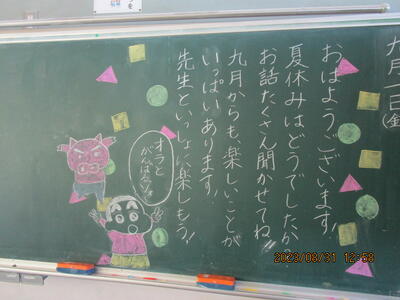 九月一日(金)
おはようございます!
夏休みはどうでしたか。
お話たくさん聞かせてね!!
九月からも、楽しいことが
いっぱいあります!
先生といっしょに楽しもう!!
オラと
がんばろうゾ
2023/08/31 12:58